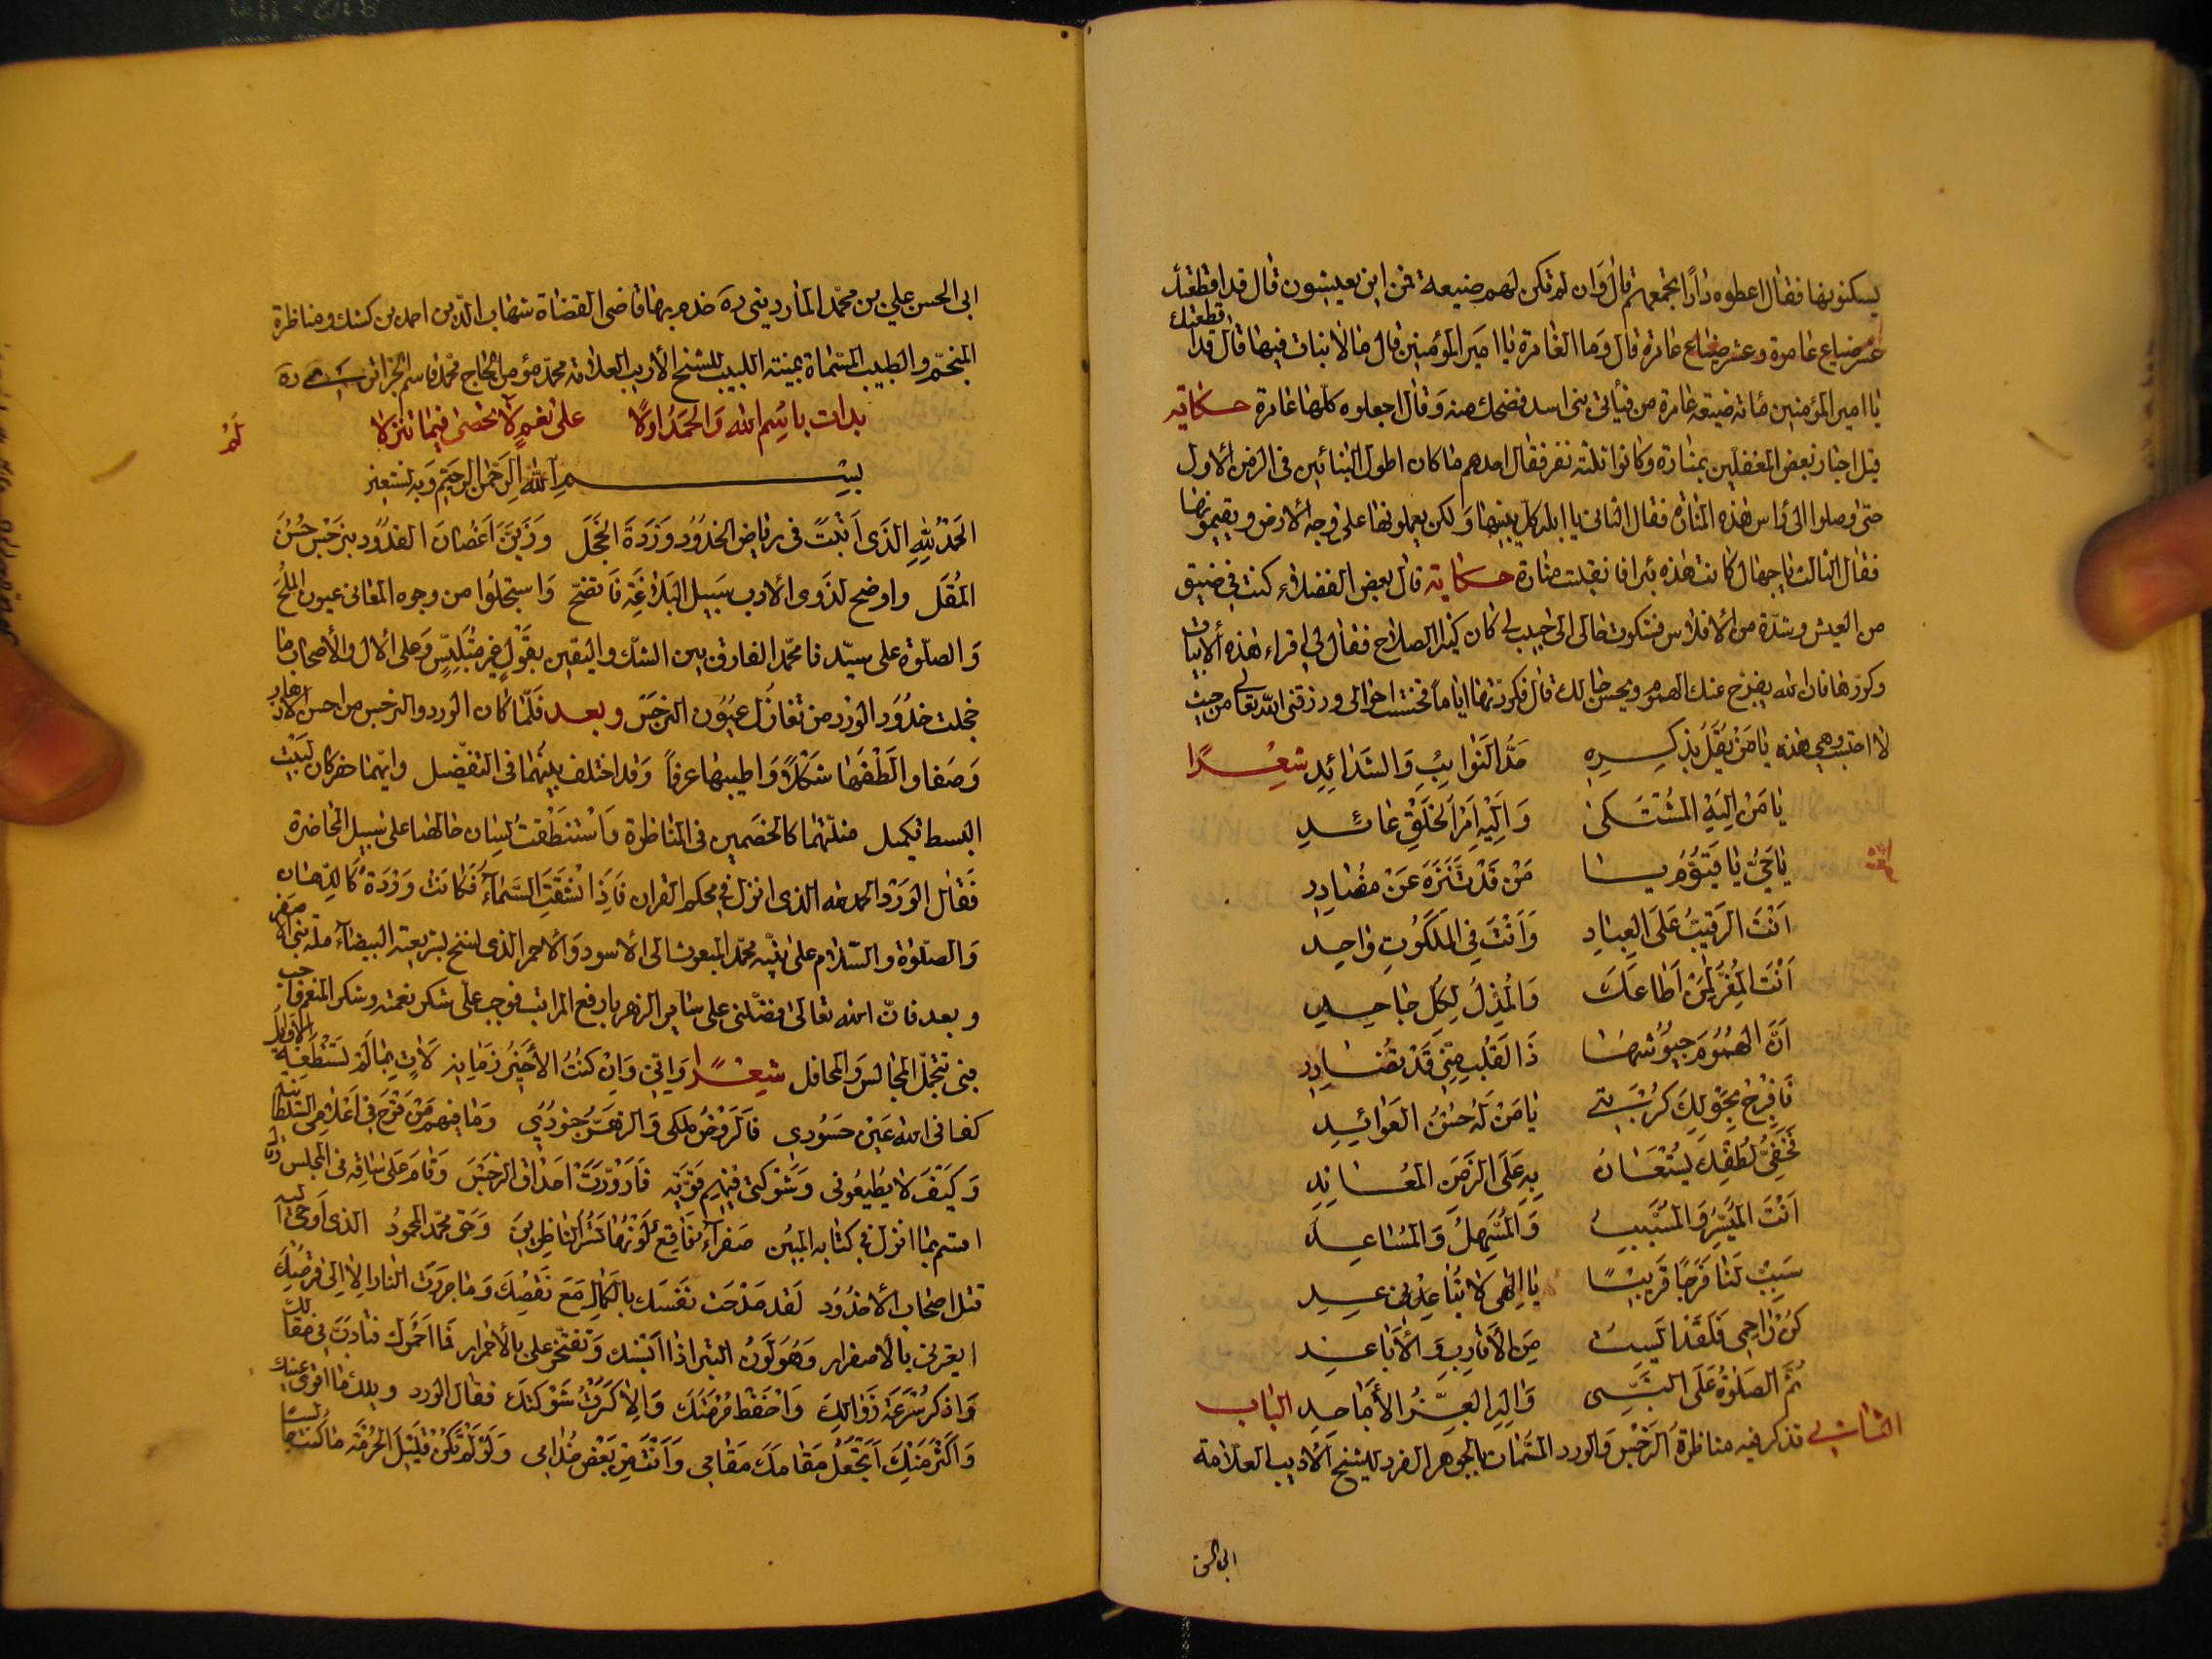 يسكنونها فقال اعطوه دارًا تجمعهم قال وان لم تكن لهم ضيعة فمن اين يعيشون قال قد اقطعتك
عشر ضياع عامرة وعشر ضياع غامرة قال وما الغامرة يا امير المؤمنين قال ما لا نبات فيها قال قد اقطعتك
يا امير المؤمنين مائة ضيعة غامرة من فيافى بنى اسد فضحك منه وقال اجعلوه كلها عامرة حكاية
قيل اجتاز بعض المغفلين بمنارة وكانوا ثلثه نفر فقال احدهم ما كان اطول البنائين فى الزمن الاول
حتى وصلوا الى رأس هذه المنارة فقال الثانى يا ابله كل يبنيها ولكن يعملونها على وجه الارض ويقيمونها
فقال الثالث يا جهال كانت هذه بئرا فانقلبت منارة حكاية قال بعض الفضلاء كنت فى ضيق
من العيش وشدة من الافلاس فشكوت حالى الى حبيب لى كان كثير الصلاح فقال لى اقراء هذه الابيات
وكررها فان الله يفرج عنك الهم ويحسن حالك قال فكررتها اياماً فحسنت احوالى ورزقنى الله تعالى من حيث
لا احتسب وهى هذه يا من يفل بذكره مدّ النوايب والشدائد شعرًا
يا من اليه المشتكى واليه امر الخلق عائد
يا حى يا قيوم يا من قد تنزه عن مضادد
انت الرقيب على العباد وانت فى الملكوت واحد
انت المعز لمن اطاعك والمذل لكل جاحد
ان الهموم جيوشها ذا لقلب منى قد تضادد
فافرج بحولك كربتى يا من له حسن العوائد
فخفى لطفك يستعان به على الزمن المعاند
انت الميسر والمسبب والمسهل والمساعد
سبب لنا فرجًا قريبًا يا الهى لا تباعد
كن راحمى فلقد ايست من الاقارب والاباعد
ثم الصلوة على النبى واله الغر الاماجد الباب
الثانى نذكر فيه مناظرة النرجس والورد المسمات بالجوهر الفرد للشيخ الاديب العلامة
ابى الحسن
ابى الحسن على بن محمد الماردينى ره خدم بها قاضى القضاة شهاب الدين احمد بن كشك ومناظرة
المنجم والطبيب المسماة بمنية اللبيب للشيخ الاديب العلامة محمد مؤمن الحاج محمد قاسم الجزائرى ره
بدات باسم الله والحمد اولًا على نعم لا تحصى فيما تنزلا
بسم الله الرحمن الرحيم وبه نستعين
الحمد لله الذى انبت فى رياض الخدود وردة الخجل وزين اغصان القدود بنرجس حسن
المقل واوضح لذوى الادب سبيل البلاغة فاتضح واستجلوا من وجوه المعانى عيون الملح
والصلوة على سيدنا محمد الفارق بين الشك واليقين بقول غير متلبس وعلى الال والاصحاب ما
خجلت خدود الورد من تغازل عيون النرجس وبعد فلما كان الورد والنرجس من احسن الازهار
وصفا والطفها شكلًا واطيبها عرفاً وقد اختلف بينهما فى التفضيل وايهما
البسط تكميل مثلتهما كالخصمين فى المناظرة واستنطقت لسان حالهما على سبيل المحاضرة
فقال الورد الحمد لله الذى انزل فى محكم القران فاذا انشقت السماء فكانت وردة كالدهان
والصلوة والسلام على نبيه محمد المبعوث الى الاسود والاحمر الذى نسخ بشريعته البيضاء ملة بنى الاصفر
وبعد فان الله تعالى فضلنى على ساير الزهر بارفع المراتب فوجب على شكر نعمته وشكر المنعم واجب
فبى تتجمل المجالس والمحافل شعرًا وانى وان كنت الاخير زمانه لات بما لم تستطعه الاوائل
كفانى الله عين حسودى فالروض ملكى والزهر جنودى وما فيهم من قدح فى اعلامى السلطانيه
وكيف لا يطيعونى وشوكتى فيهم قويه فازورت احداق النرجس وقام على ساقه فى المجلس وقال
اقسم بما انزل فى كتابه المبين صفراء فاقع لونها تسر الناظرين وحق محمد المحمود الذى اوحى اليه
قتل اصحاب الاخدود لقد مدحت نفسك بالكمال مع نقصك وما جررت النار الا الى قرصك
ايعرنى بالاصفرار وهو لون التبر اذا انتبك وتفتخر على بالاحمرار فما احمرك فتادب فى مقالك
واذكر سرعة زوالك واحفظ حرمتك والا كسرت شوكتك فقال الورد ويلك ما اقوى عينك
واكثر منك اتجعل مقامك مقامى وانت من بعض خدامى ولو لم تكن قليل الحرمة ما كنت جالسًا